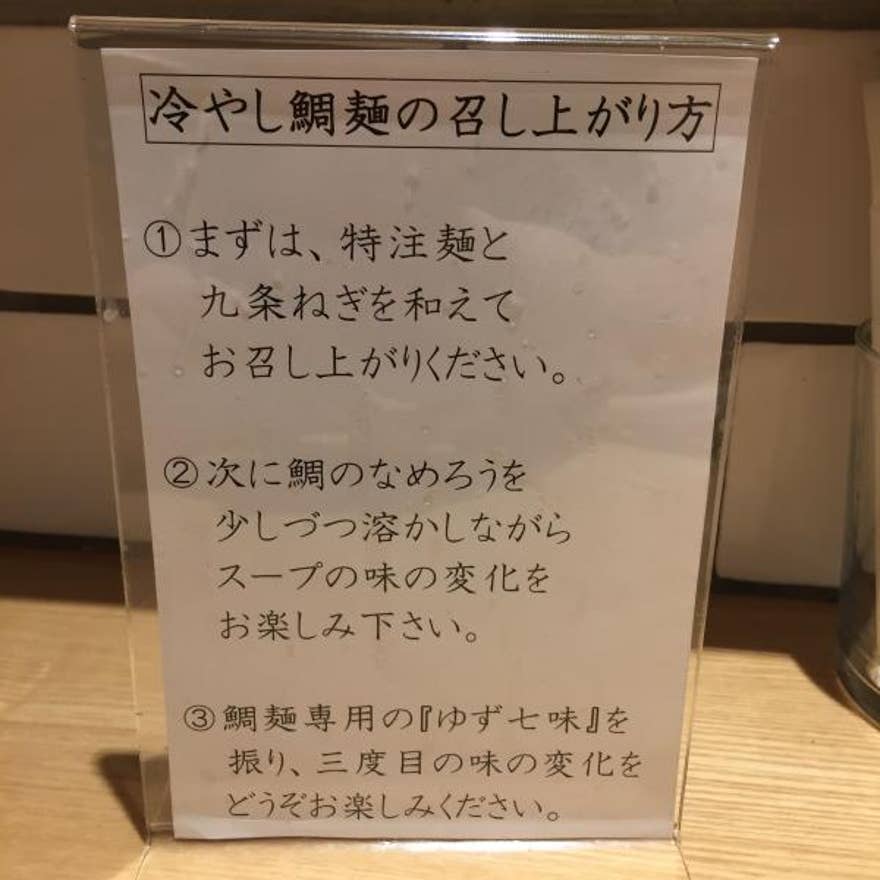 冷やし鯛麺の召し上がり方
①まずは、特注麺と
九条ねぎを和えて
お召し上がりください。
②次に鯛のなめろうを
少しづつ溶かしながら
スープの味の変化を
お楽しみ下さい。
③鯛麺専用の『ゆず七味』を
振り、三度目の味の変化を
どうぞお楽しみください。